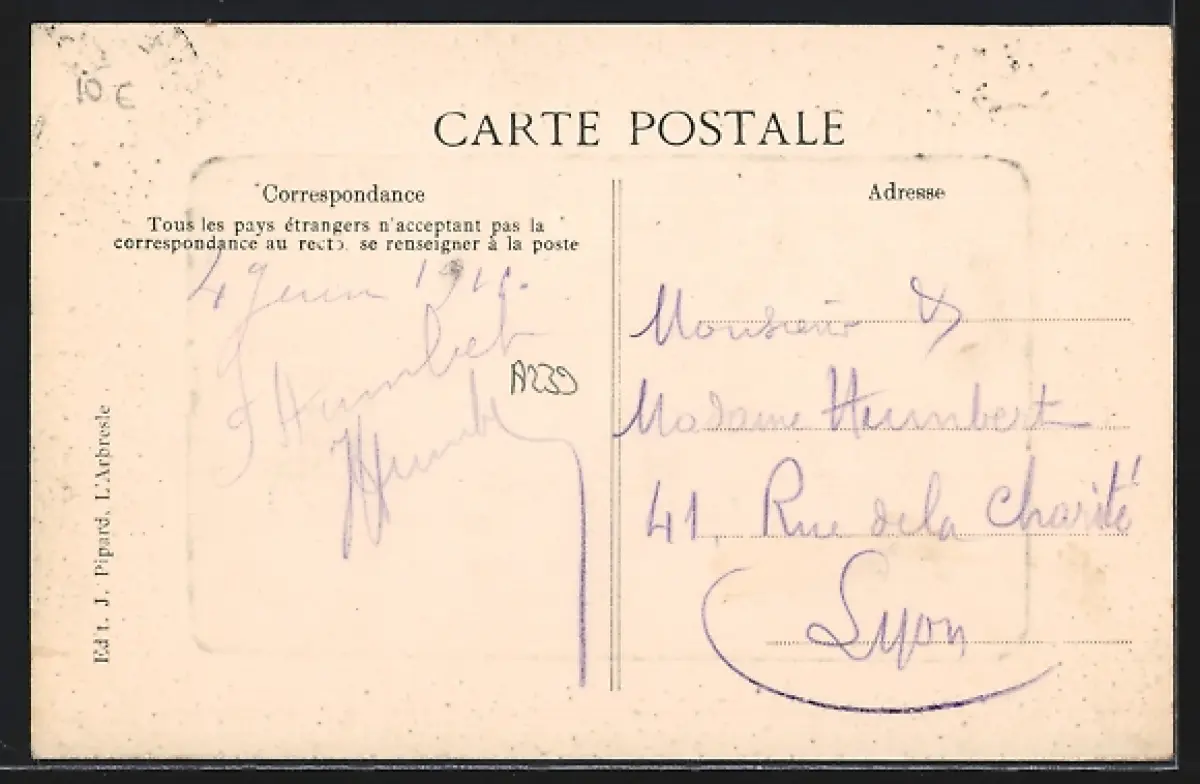 10 €
CARTE POSTALE
Correspondance
Tous les pays étrangers n'acceptant pas la
correspondance au recto. se renseigner à la poste
4 Juin
Humbert
A239
Humb
Adresse
Monsieur &
Madame Humbert
41, Rue de la Charité
Lyon
Edit. J. Pipard, L'Arbresle